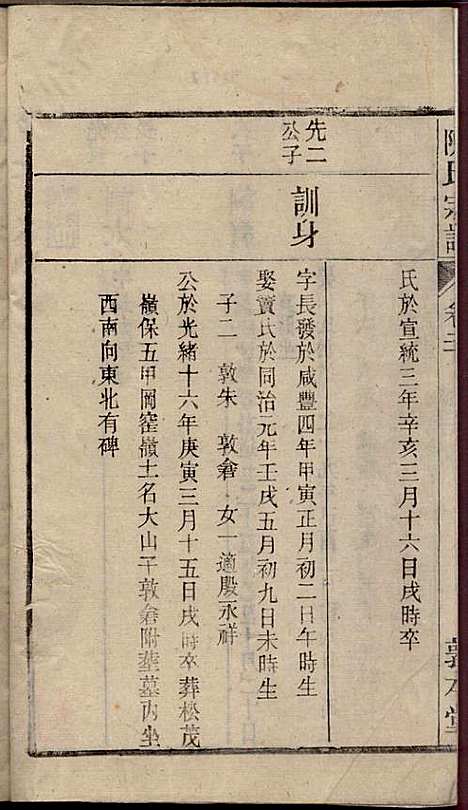 陳氏宗譜
卷二
敦本堂
氏於宣統三年辛亥三月十六日戌時卒
先二
公子
訓身
字長發於咸豐四年甲寅正月初二日午時生
娶竇氏於同治元年壬戌五月初九日未時生
子二 敦朱 敦倉 女一適殷永祥
公於光緒十六年庚寅三月十五日戌時卒葬松茂
嶺保五甲岡窑嶺土名大山子敦倉附塟墓內坐
西南向東北有碑